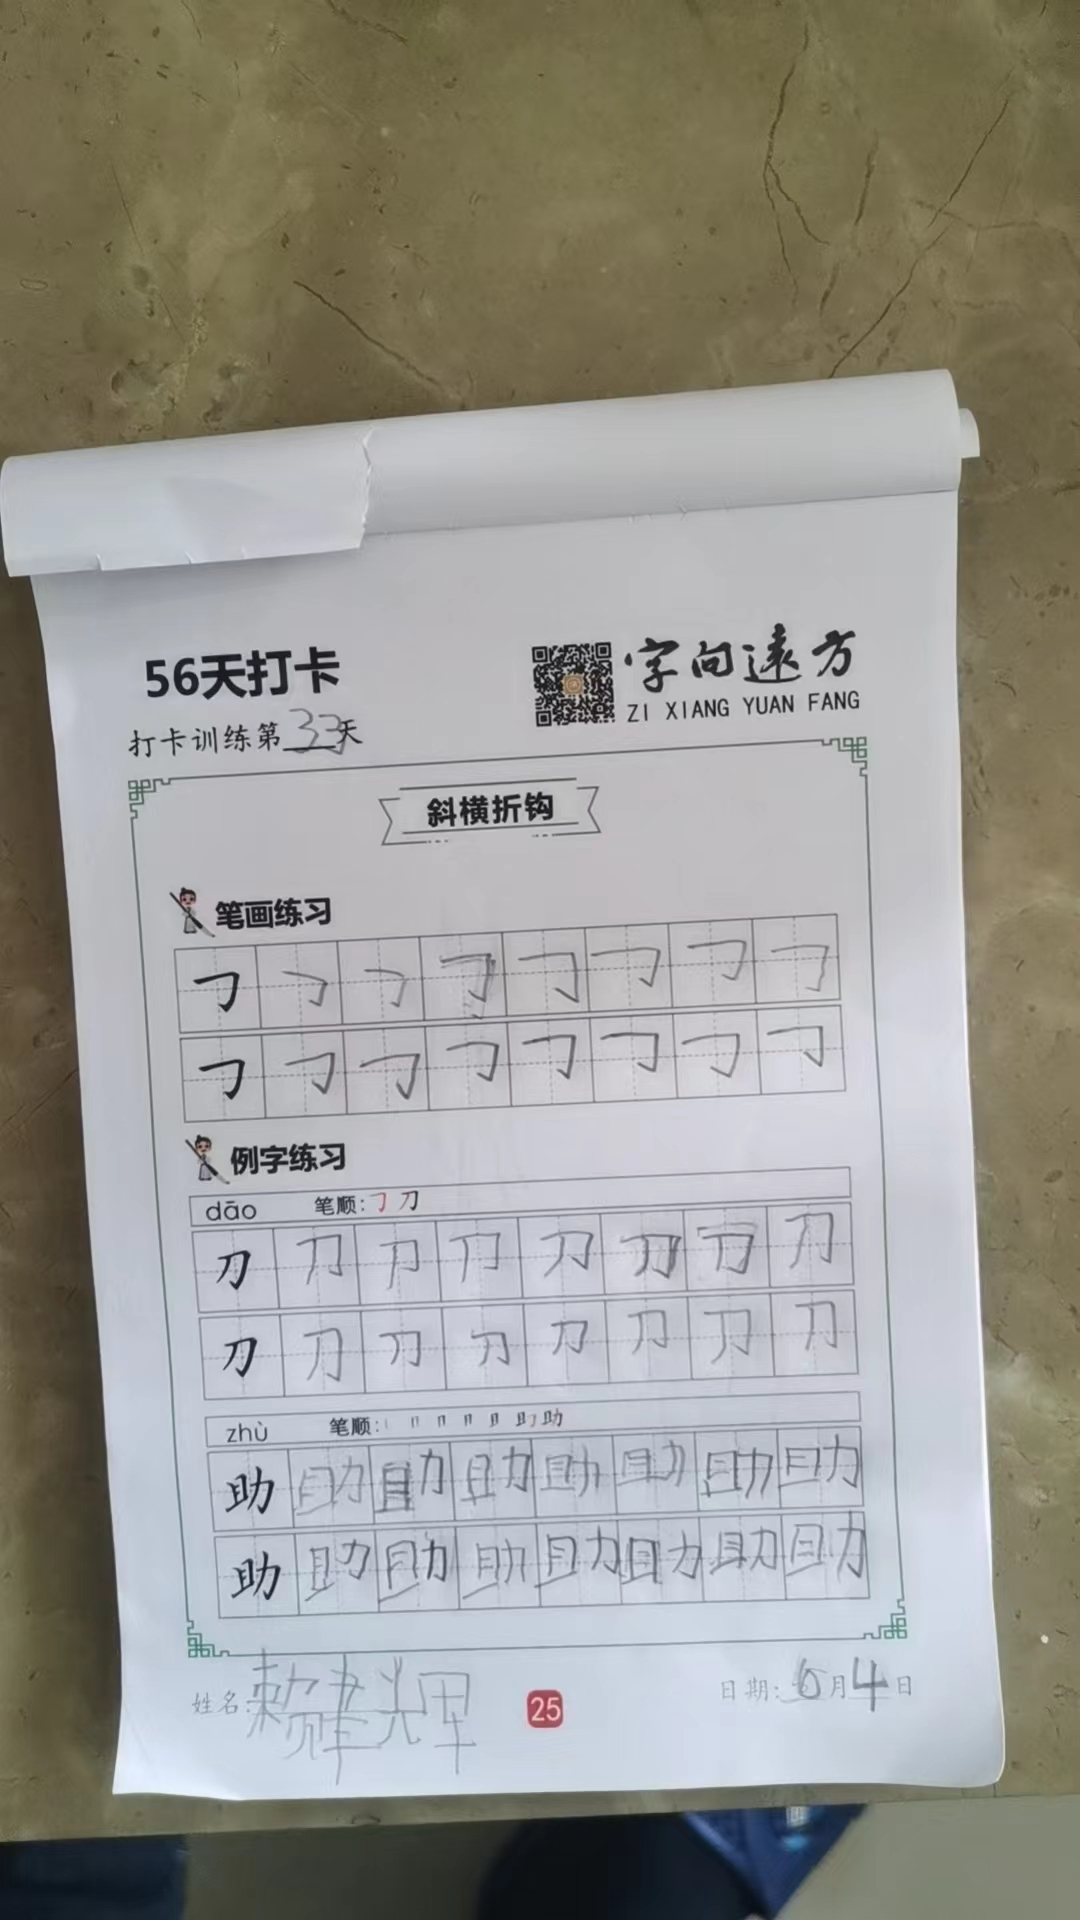 56天打卡
字向遠方
ZI XIANG YUAN FANG
打卡训练第33天
斜横折钩
笔画练习
例字练习
dāo 笔顺: 刀
刀 刀 刀 刀 刀 刀 刀 刀
刀 刀 刀 刀 刀 刀 刀 刀
zhù 笔顺: 助
助 助 助 助 助 助 助 助
助 助 助 助 助 助 助 助
姓名: 赖建辉
25
日期: 6月4日